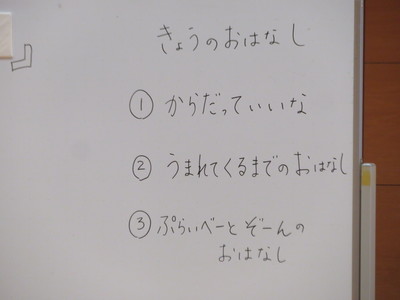 きょうのおはなし
① からだっていいな
② うまれてくるまでのおはなし
③ ぷらいべーとぞーんの
おはなし